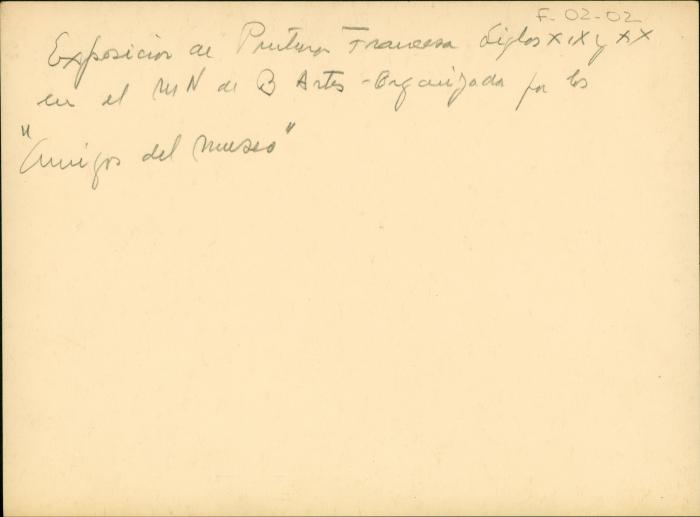 F-02-02
Exposicion de Pintura Francesa Siglos XIX y XX
en el M N de B Artes - Organizada por los
"Amigos del Museo"